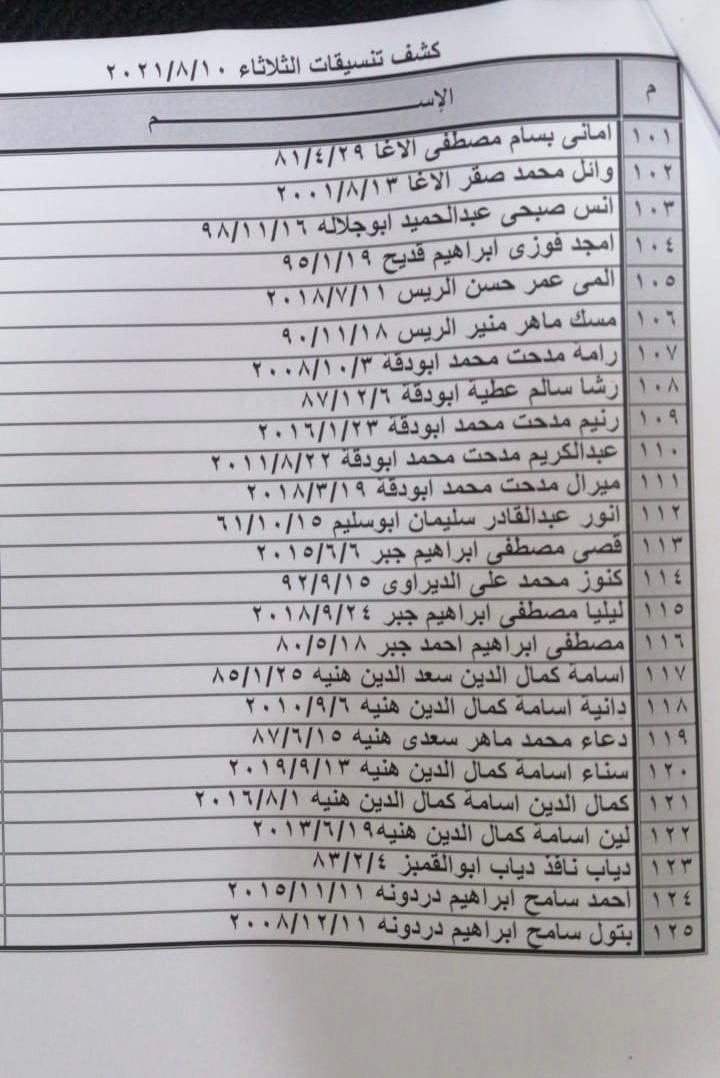 كشف تنسيقات الثلاثاء ٢٠٢١/٨/١٠
م الإســـــــــم
١٠١ امانى بسام مصطفى الاغا ٨١/٤/٢٩
١٠٢ وائل محمد صقر الاغا ٢٠٠١/٨/١٣
١٠٣ انس صبحى عبدالحميد ابوجلاله ٩٨/١١/١٦
١٠٤ امجد فوزى ابراهيم قديح ٩٥/١/١٩
١٠٥ المى عمر حسن الريس ٢٠١٨/٧/١١
١٠٦ مسك ماهر منير الريس ٩٠/١١/١٨
١٠٧ رامة مدحت محمد ابودقة ٢٠٠٨/١٠/٣
١٠٨ رشا سالم عطية ابودقة ٨٧/١٢/٦
١٠٩ رنيم مدحت محمد ابودقة ٢٠١٦/١/٢٣
١١٠ عبدالكريم مدحت محمد ابودقة ٢٠١١/٨/٢٢
١١١ ميرال مدحت محمد ابودقة ٢٠١٨/٣/١٩
١١٢ انور عبدالقادر سليمان ابوسليم ٦١/١٠/١٥
١١٣ قصى مصطفى ابراهيم جبر ٢٠١٥/٦/٦
١١٤ كنوز محمد على الديراوى ٩٢/٩/١٥
١١٥ ليليا مصطفى ابراهيم جبر ٢٠١٨/٩/٢٤
١١٦ مصطفى ابراهيم احمد جبر ٨٠/٥/١٨
١١٧ اسامة كمال الدين سعد الدين هنيه ٨٥/١/٢٥
١١٨ دانية اسامة كمال الدين هنيه ٢٠١٠/٩/٦
١١٩ دعاء محمد ماهر سعدى هنيه ٨٧/٦/١٥
١٢٠ سناء اسامة كمال الدين هنيه ٢٠١٩/٩/١٣
١٢١ كمال الدين اسامة كمال الدين هنيه ٢٠١٦/٨/١
١٢٢ لين اسامة كمال الدين هنيه٢٠١٣/٦/١٩
١٢٣ دياب نافذ دياب ابوالقمبز ٨٣/٢/٤
١٢٤ احمد سامح ابراهيم دردونه ٢٠١٥/١١/١١
١٢٥ بتول سامح ابراهيم دردونه ٢٠٠٨/١٢/١١